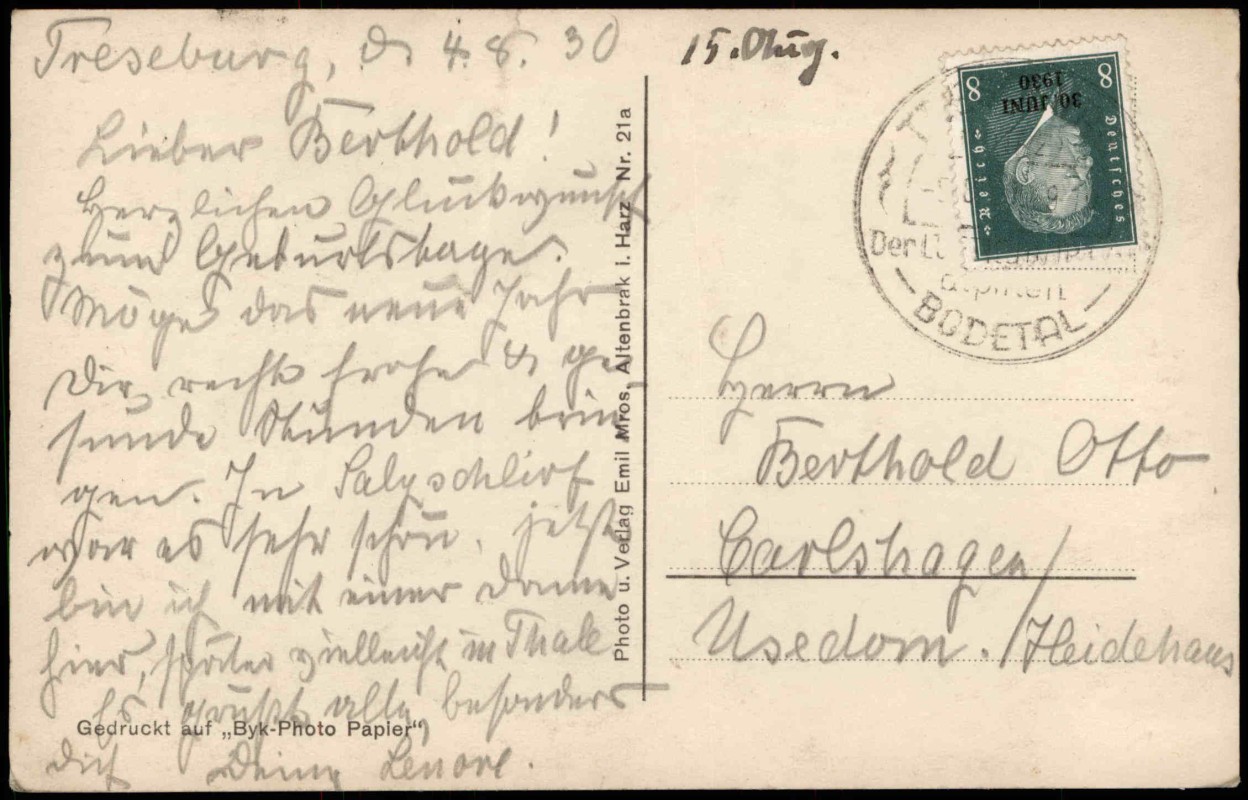 Treseburg, d. 4.8.30
Lieber Berthold!
Herzlichen Glückwunsch
zum Geburtstage.
Möge das neue Jahr
Dir recht frohe & ge-
sunde Stunden brin-
gen. In Salzschlirf
war es sehr schön, jetzt
bin ich mit einer Dame
hier, später vielleicht in Thale
Es grüßt alle, besonders
dich Deine Lenore.
Gedruckt auf „Byk-Photo Papier“
Photo u. Verlag Emil Mros, Altenbrak i. Harz Nr. 21a
15. Aug.
8 8
Deutsches
Reich
30. JUNI
1930
Der
BODETAL
Herrn
Berthold Otto
Carlshagen/
Usedom./Heidehaus